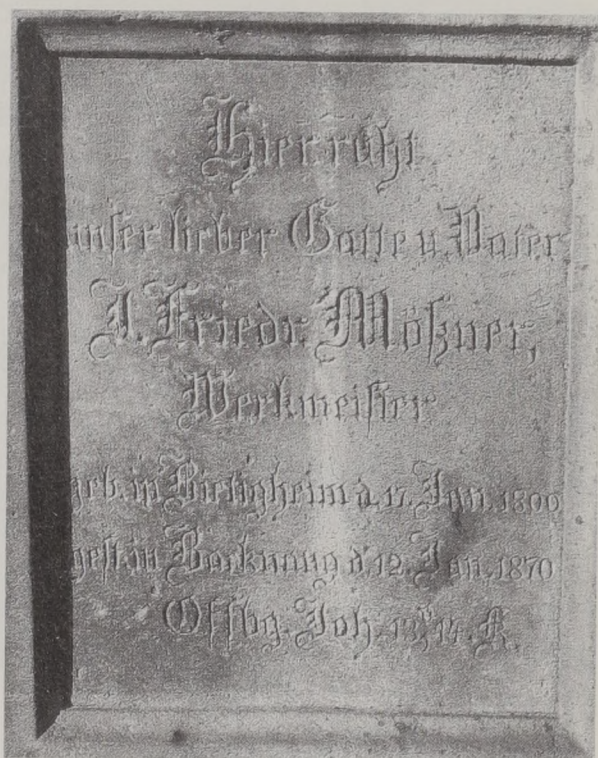 Hier ruht
unser lieber Gatte u. Vater
J. Friedr. Mößner,
Werkmeister
geb. in Bietigheim d. 17. Jan. 1800
gest. in Backnang d. 12. Jan. 1870
Offbg. Joh. 14. K.